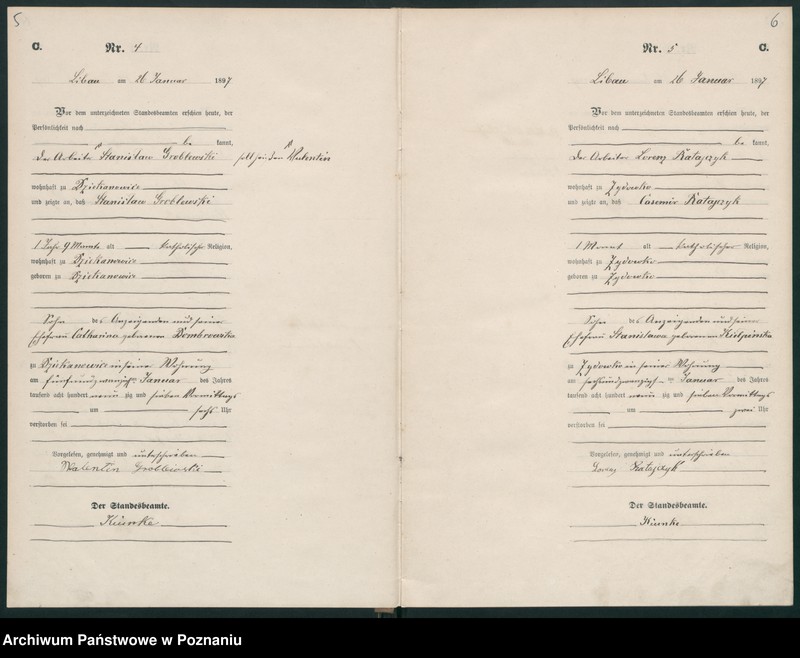 5
C. Nr. 4
Libau am 26 Januar 1897
Vor dem unterzeichneten Standesbeamten erschien heute, der
Persönlichkeit nach
be kannt,
der Arbeiter Stanislaw Groblewski soll sein den Valentin
wohnhaft zu Dziekanowice
und zeigte an, daß Stanislaw Groblewski
1 Jahr 9 Monate alt katholischer Religion,
wohnhaft zu Dziekanowice
geboren zu Dziekanowice
Sohn des Anzeigenden und seiner
Ehefrau Catharina geborenen Dombrowska
zu Dziekanowice in seiner Wohnung
am fünfundzwanzigsten Januar des Jahres
tausend acht hundert neun zig und sieben Vormittags
um sechs Uhr
verstorben sei
Vorgelesen, genehmigt und unterschrieben
Walentin Groblewski
Der Standesbeamte.
6
Nr. 5 C.
Libau am 26 Januar 1897
Vor dem unterzeichneten Standesbeamten erschien heute, der
Persönlichkeit nach
be kannt,
der Arbeiter Lorenz Ratajczyk
wohnhaft zu Zydowko
und zeigte an, daß Casemir Ratajczyk
1 Monat alt katholischer Religion,
wohnhaft zu Zydowko
geboren zu Zydowko
Sohn des Anzeigenden und seiner
Ehefrau Stanislawa geborenen
zu Zydowko in seiner Wohnung
am sechsundzwanzigsten Januar des Jahres
tausend acht hundert neun zig und sieben Vormittags
um zwei Uhr
verstorben sei
Vorgelesen, genehmigt und unterschrieben
Ratajczyk
Der Standesbeamte.
Archiwum Państwowe w Poznaniu